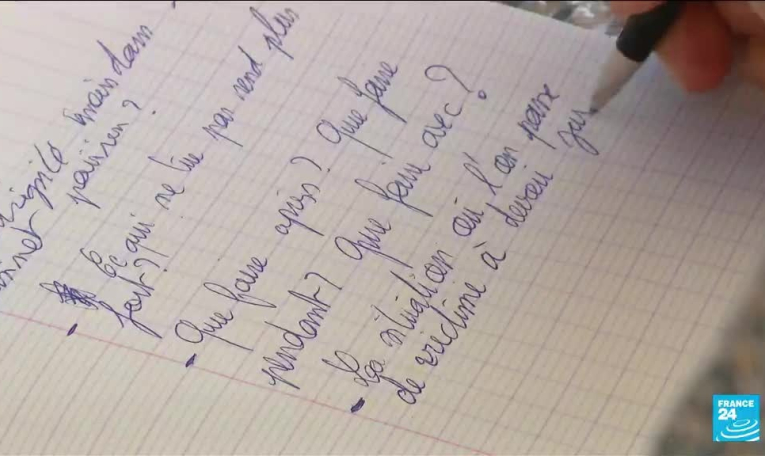 fragilité
Ce qui ne tue pas rend plus
fort ??
- Que faire après ? Que faire
pendant ? Que faire avec ?
- La situation où l'on passe
de victime à devoir
FRANCE
24